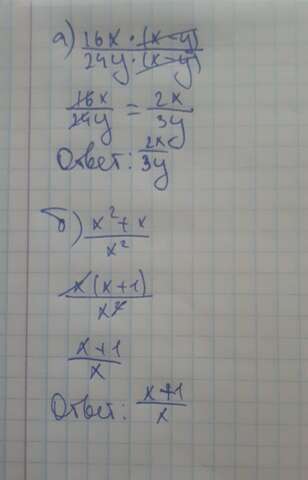 а) 16x · (x-y) / 24y · (x-y)
16x / 24y = 2x / 3y
Ответ: 2x / 3y
б) x² + x / x²
x(x+1) / x²
x+1 / x
Ответ: x+1 / x